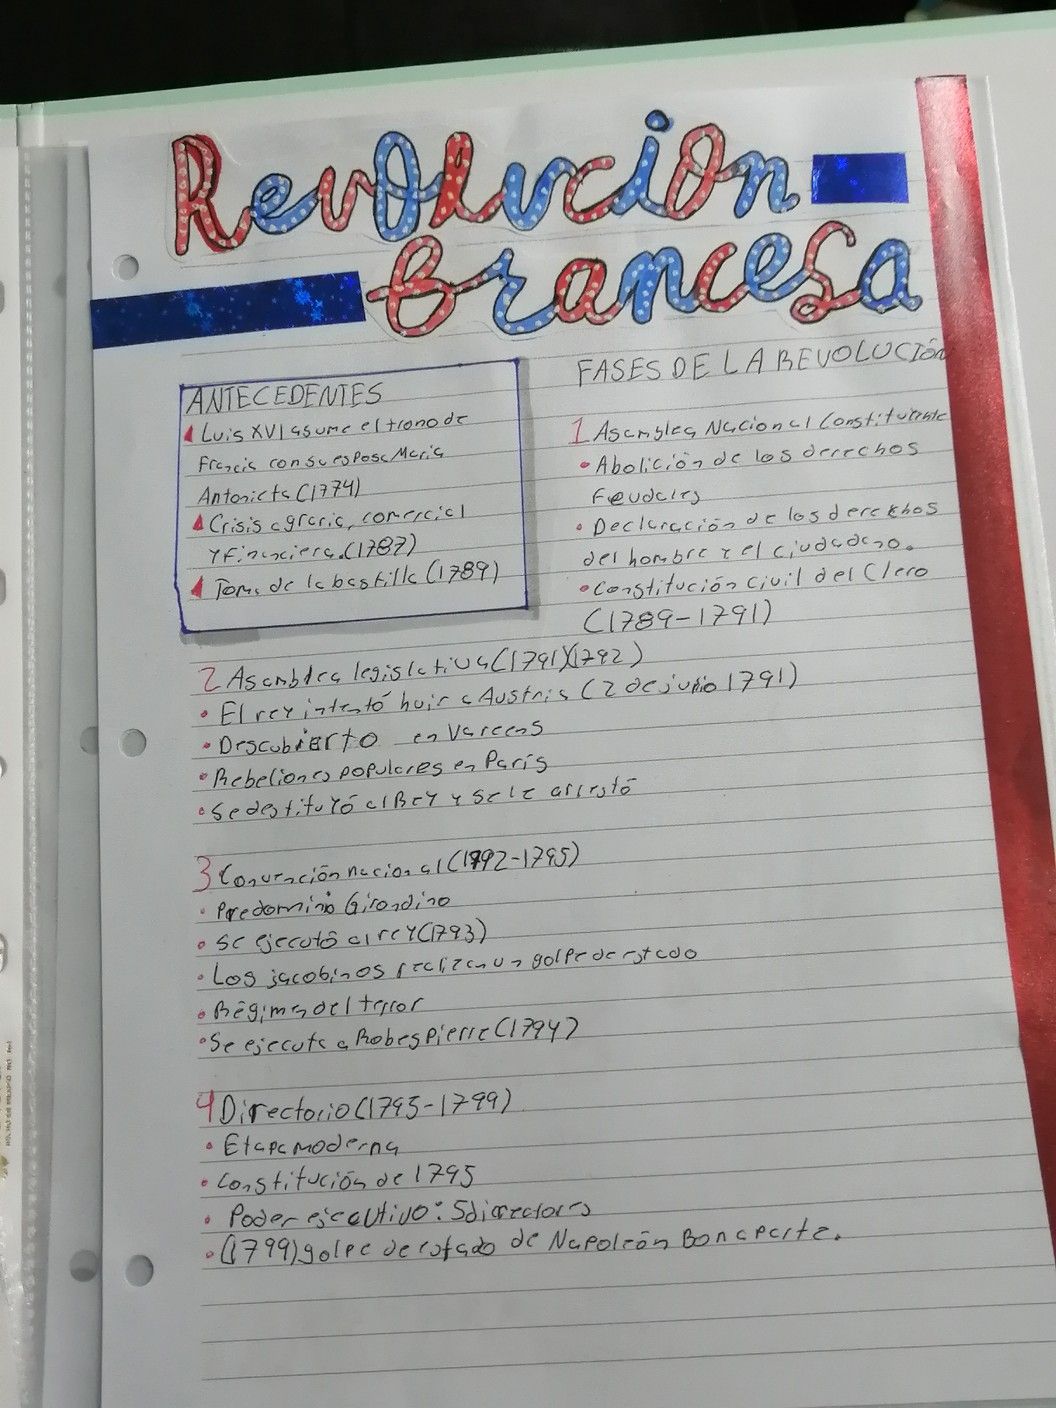 Revolución
Francesa
ANTECEDENTES
Luis XVI asume el trono de
Francia con su esposa Maria
Antonieta (1774)
Crisis agraria, comercial
y Financiera. (1787)
Toma de la bastilla (1789)
FASES DE LA REVOLUCIÓN
1 Asamblea Nacional Constituyente
• Abolición de los derechos
Feudales
• Declaración de los derechos
del hombre y el ciudadano.
• Constitución Civil del Clero
(1789-1791)
2 Asamblea legislativa (1791)(1792)
• El rey intentó huir a Austria (2 de junio 1791)
• Descubierto en Vareens
• Rebeliones populares en París
• Se destituyó al Rey y se le arrestó
3 Convención nacional (1792-1795)
• Predominio Girondino
• Se ejecutó al rey (1793)
• Los jacobinos realizan un golpe de estado
• Régimen del terror
• Se ejecuta a Robespierre (1794)
4 Directorio (1795-1799)
• Etapa moderna
• Constitución de 1795
• Poder ejecutivo: 5 directores
• (1799) golpe de estado de Napoleón Bonaparte.